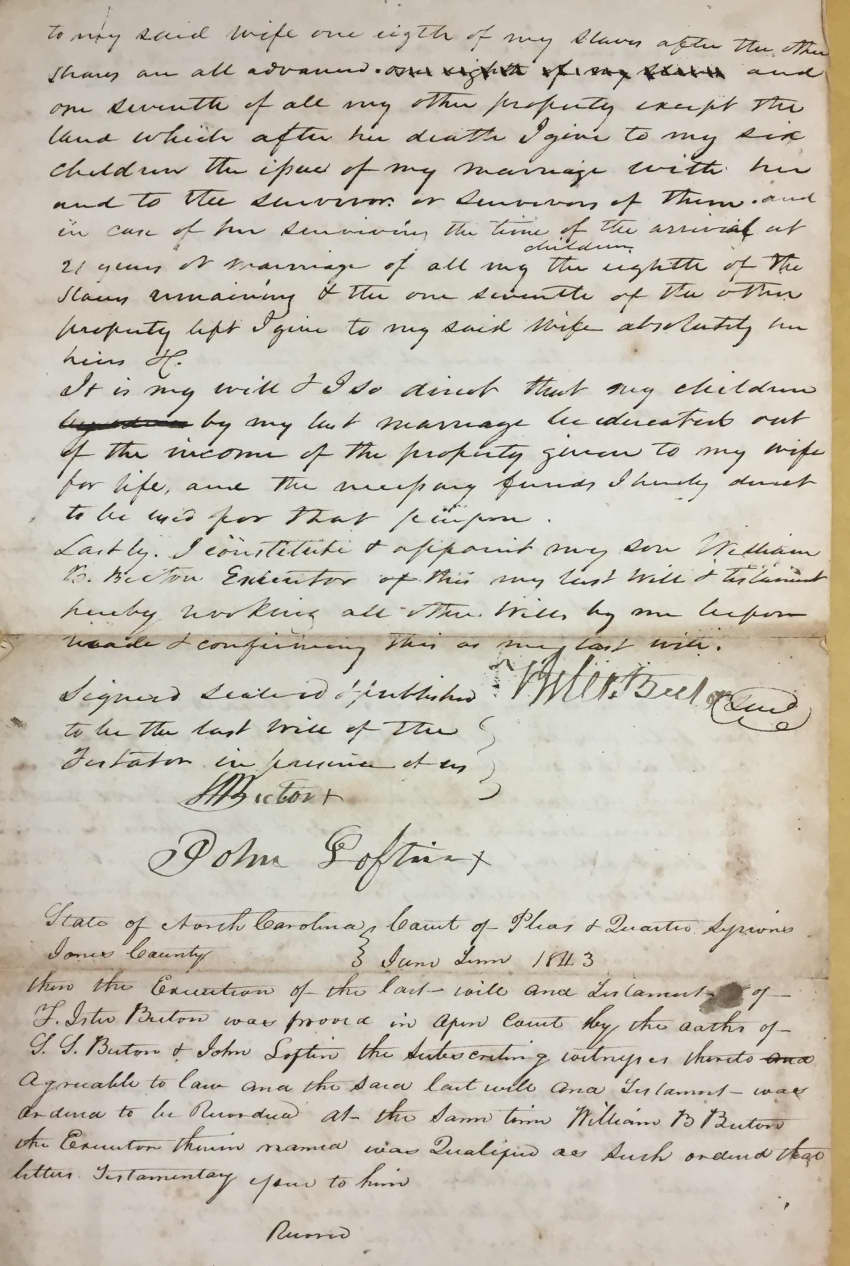 to my said wife one eigth of my slaves after the other
shares are all advanced. one eighth of my slaves and
one seventh of all my other property except the
land which after her death I give to my six
children the issue of my marriage with her
and to the survivor or survivors of them. and
in case of her surviving the time of the arrival at
children
21 years or marriage of all my the eighth of the
slaves remaining & the one seventh of the other
property left I give to my said wife absolutely her
heirs &c.
It is my will & I so direct that my children
by my last marriage be educated out
of the income of the property given to my wife
for life, and the necessary funds I hereby direct
to be used for that purpose.
Lastly. I constitute & appoint my son William
B. Becton Executor of this my last will & testament
hereby revoking all other Wills by me before
made & confirming this as my last will.
Signed sealed & published
Becton Seal
to be the last will of the
Testator in presence of us
Becton +
John Loftin +
State of North Carolina Court of Pleas & Quarter Sessions
Jones County June Term 1843
then the Execution of the last will and Testament of
F. Becton was proved in open Court by the oaths of
Becton & John Loftin the subscribing witnesses thereto and
Agreeable to law and the said last will and Testament was
ordered to be Recorded at the same time William B Becton
the Executor therein named was Qualified as such ordered that
letters Testamentary issue to him
Record